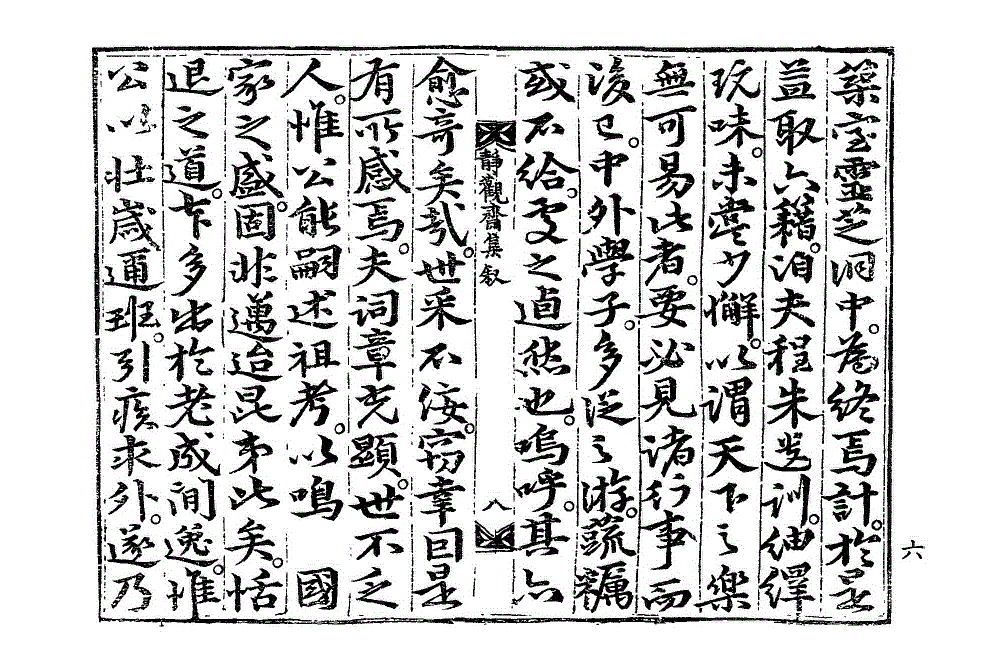 築室靈芝洞中。為終焉計。於是
益取六籍。洎夫程朱遺訓。紬繹
玩味。未嘗少懈。以謂天下之樂
無可易此者。要必見諸行事而
後已。中外學子。多從之游。蔬糲
或不給。處之逌然也。嗚呼。其亦
靜觀齋集敘
八
愈奇矣哉。世采不佞。竊幸曰是
有所感焉。夫詞章充顯。世不乏
人。惟公能嗣述祖考。以鳴 國
家之盛。固非邁迨昆弟此矣。恬
退之道。卞多出於老成閒逸。惟
公以壯歲通班。引疾求外。遂乃
六